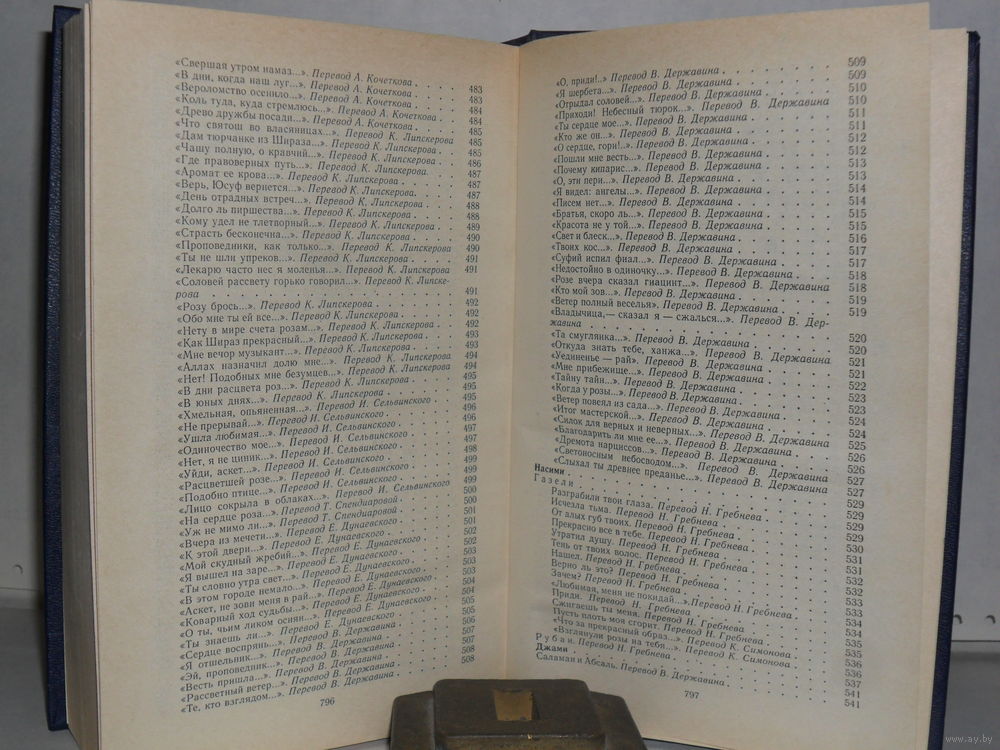 «Свершая утром намаз...». Перевод А. Кочеткова . . . . 483
«В дни, когда наш луг...». Перевод А. Кочеткова . . . 483
«Вероломство осенило...». Перевод А. Кочеткова . . . 484
«Коль туда, куда стремлюсь...». Перевод А. Кочеткова . . 484
«Древо дружбы посади...». Перевод А. Кочеткова . . . 485
«Что святош во власяницах...». Перевод К. Липскерова 485
«Дам тюрчанке из Шираза...». Перевод К. Липскерова . . 485
«Чашу полную, о кравчий...». Перевод К. Липскерова . . 486
«Где правоверных путь...». Перевод К. Липскерова . . 487
«Аромат ее крова...». Перевод К. Липскерова . . . 487
«Верь, Юсуф вернется...». Перевод К. Липскерова . . . 487
«День отрадных встреч...». Перевод К. Липскерова . . . 488
«Долго ль пиршества...». Перевод К. Липскерова . . . 488
«Кому удел не тлетворный...». Перевод К. Липскерова . . 489
«Страсть бесконечна...». Перевод К. Липскерова . . . 490
«Проповедники, как только...». Перевод К. Липскерова 490
«Ты не шли упреков...». Перевод К. Липскерова . . . 491
«Лекарю часто нес я моленья...». Перевод К. Липскерова 491
«Соловей рассвету горько говорил...». Перевод К. Липске-
рова . . . . . . . . . . . . 491
«Розу брось...». Перевод К. Липскерова . . . . 492
«Обо мне ты ей все...». Перевод К. Липскерова . . . 492
«Нету в мире счета розам...». Перевод К. Липскерова . . 492
«Как Шираз прекрасный...». Перевод К. Липскерова . . 493
«Мне вечор музыкант...». Перевод К. Липскерова . . . 493
«Аллах назначил долю мне...». Перевод К. Липскерова . 494
«Нет! Подобных мне безумцев...». Перевод К. Липскерова 494
«В дни расцвета роз...». Перевод К. Липскерова . . . 495
«В юных днях...». Перевод К. Липскерова . . . . 495
«Хмельная, опьяненная...». Перевод И. Сельвинского . . 495
«Не прерывай...». Перевод И. Сельвинского . . . . 496
«Ушла любимая...». Перевод И. Сельвинского . . . . 496
«Одиночество мое...». Перевод И. Сельвинского . . . 497
«Нет, я не циник...». Перевод И. Сельвинского . . . 497
«Уйди, аскет...». Перевод И. Сельвинского . . . . 498
«Расцветшей розе...». Перевод И. Сельвинского . . . 499
«Подобно птице...». Перевод И. Сельвинского . . . . 499
«Лицо сокрыла в облаках...». Перевод И. Сельвинского . 500
«На сердце роза...». Перевод Т. Спендиаровой . . . 500
«Уж не мимо ли...». Перевод Т. Спендиаровой . . . . 501
«Вчера из мечети...». Перевод Е. Дунаевского . . . 501
«К этой двери...». Перевод Е. Дунаевского . . . . 502
«Мой скудный жребий...». Перевод Е. Дунаевского . . . 502
«Я вышел на заре...». Перевод Е. Дунаевского . . . 503
«Ты словно утра свет...». Перевод Е. Дунаевского . . . 503
«В этом городе немало...». Перевод Е. Дунаевского . . 504
«Аскет, не зови меня в рай...». Перевод Е. Дунаевского . 504
«Коварный ход судьбы...». Перевод Е. Дунаевского . .
«О ты, чьим ликом осиян...». Перевод Е. Дунаевского . . 505
«Ты знаешь ли...». Перевод Е. Дунаевского . . . . 505
«Сердце воспрянь...». Перевод Е. Дунаевского . . . 506
«Я отшельник...». Перевод В. Державина . . . . 507
«Эй, проповедник...». Перевод В. Державина . . . . 507
«Весть пришла...». Перевод В. Державина . . . . 508
«Рассветный ветер...». Перевод В. Державина . . . . 508
«Те, кто взглядом...». Перевод В. Державина . . . .
796
«О, приди!..» Перевод В. Державина . . . . . . 509
«Я шербета...». Перевод В. Державина . . . . . 509
«Отрыдал соловей...». Перевод В. Державина . . . . 510
«Приходи! Небесный тюрок...». Перевод В. Державина 510
«Ты сердце мое...». Перевод В. Державина . . . . 511
«Кто же он...». Перевод В. Державина . . . . . 511
«О сердце, гори!..». Перевод В. Державина . . . . 512
«Пошли мне весть...». Перевод В. Державина . . . . 512
«Почему кипарис...». Перевод В. Державина . . . . 513
«О, эти пери...». Перевод В. Державина . . . . . 513
«Я видел: ангелы...». Перевод В. Державина . . . . 514
«Писем нет...». Перевод В. Державина . . . . . 514
«Братья, скоро ль...». Перевод В. Державина . . . . 515
«Красота не у той...». Перевод В. Державина . . . . 515
«Свет и блеск...». Перевод В. Державина . . . . . 516
«Твоих кос...». Перевод В. Державина . . . . . 517
«Суфий испил фиал...». Перевод В. Державина . . . . 517
«Недостойно в одиночку...». Перевод В. Державина . . 518
«Розе вчера сказал гиацинт...». Перевод В. Державина . 518
«Кто мой зов...». Перевод В. Державина . . . . . 519
«Ветер полный веселья». Перевод В. Державина . . . 519
«Владычица,— сказал я — сжалься...». Перевод В. Дер-
жавина . . . . . . . . . . . . 520
«Та смуглянка...». Перевод В. Державина . . . . . 520
«Откуда знать тебе, ханжа...». Перевод В. Державина . 521
«Уединенье — рай». Перевод В. Державина . . . . 521
«Мне прибежище...». Перевод В. Державина . . . . 522
«Тайну тайн...». Перевод В. Державина . . . . . 523
«Когда у розы...». Перевод В. Державина . . . . . 523
«Ветер повеял из сада...». Перевод В. Державина . . . 524
«Итог мастерской...». Перевод В. Державина . . . . 524
«Силок для верных и неверных...». Перевод В. Державина 525
«Благодарить ли мне ее...». Перевод В. Державина . . 526
«Дремота нарциссов...». Перевод В. Державина . . . 526
«Светоносным небосводом...». Перевод В. Державина . 527
«Слыхал ты древнее преданье...». Перевод В. Державина 527
Насими . . . . . . . . . . . .
Газели . . . . . . . . . . . .
Разграбили твои глаза. Перевод Н. Гребнева . . . . 529
Исчезла тьма. Перевод Н. Гребнева . . . . . . 529
От алых губ твоих. Перевод Н. Гребнева . . . . . 529
Прекрасно все в тебе. Перевод Н. Гребнева . . . . 530
Утратил душу. Перевод Н. Гребнева . . . . . . 531
Тень от твоих волос. Перевод Н. Гребнева . . . . 531
Нашел. Перевод Н. Гребнева . . . . . . . 532
Верно ль это? Перевод Н. Гребнева . . . . . . 532
Зачем? Перевод Н. Гребнева . . . . . . . 533
«Любимая, меня не покидай...». Перевод Н. Гребнева . . 533
Приди. Перевод Н. Гребнева . . . . . . . 534
Сжигаешь ты меня. Перевод Н. Гребнева . . . . . 534
Пусть плоть моя сгорит. Перевод Н. Гребнева . . . . 535
«Что за прекрасный образ...». Перевод К. Симонова . . 535
«Взглянули розы на тебя...». Перевод К. Симонова . . 536
Рубаи. Перевод Н. Гребнева . . . . . . . 537
Джами . . . . . . . . . . . .
Саламан и Абсаль. Перевод В. Державина . . . . . 541
797
www.ay.by